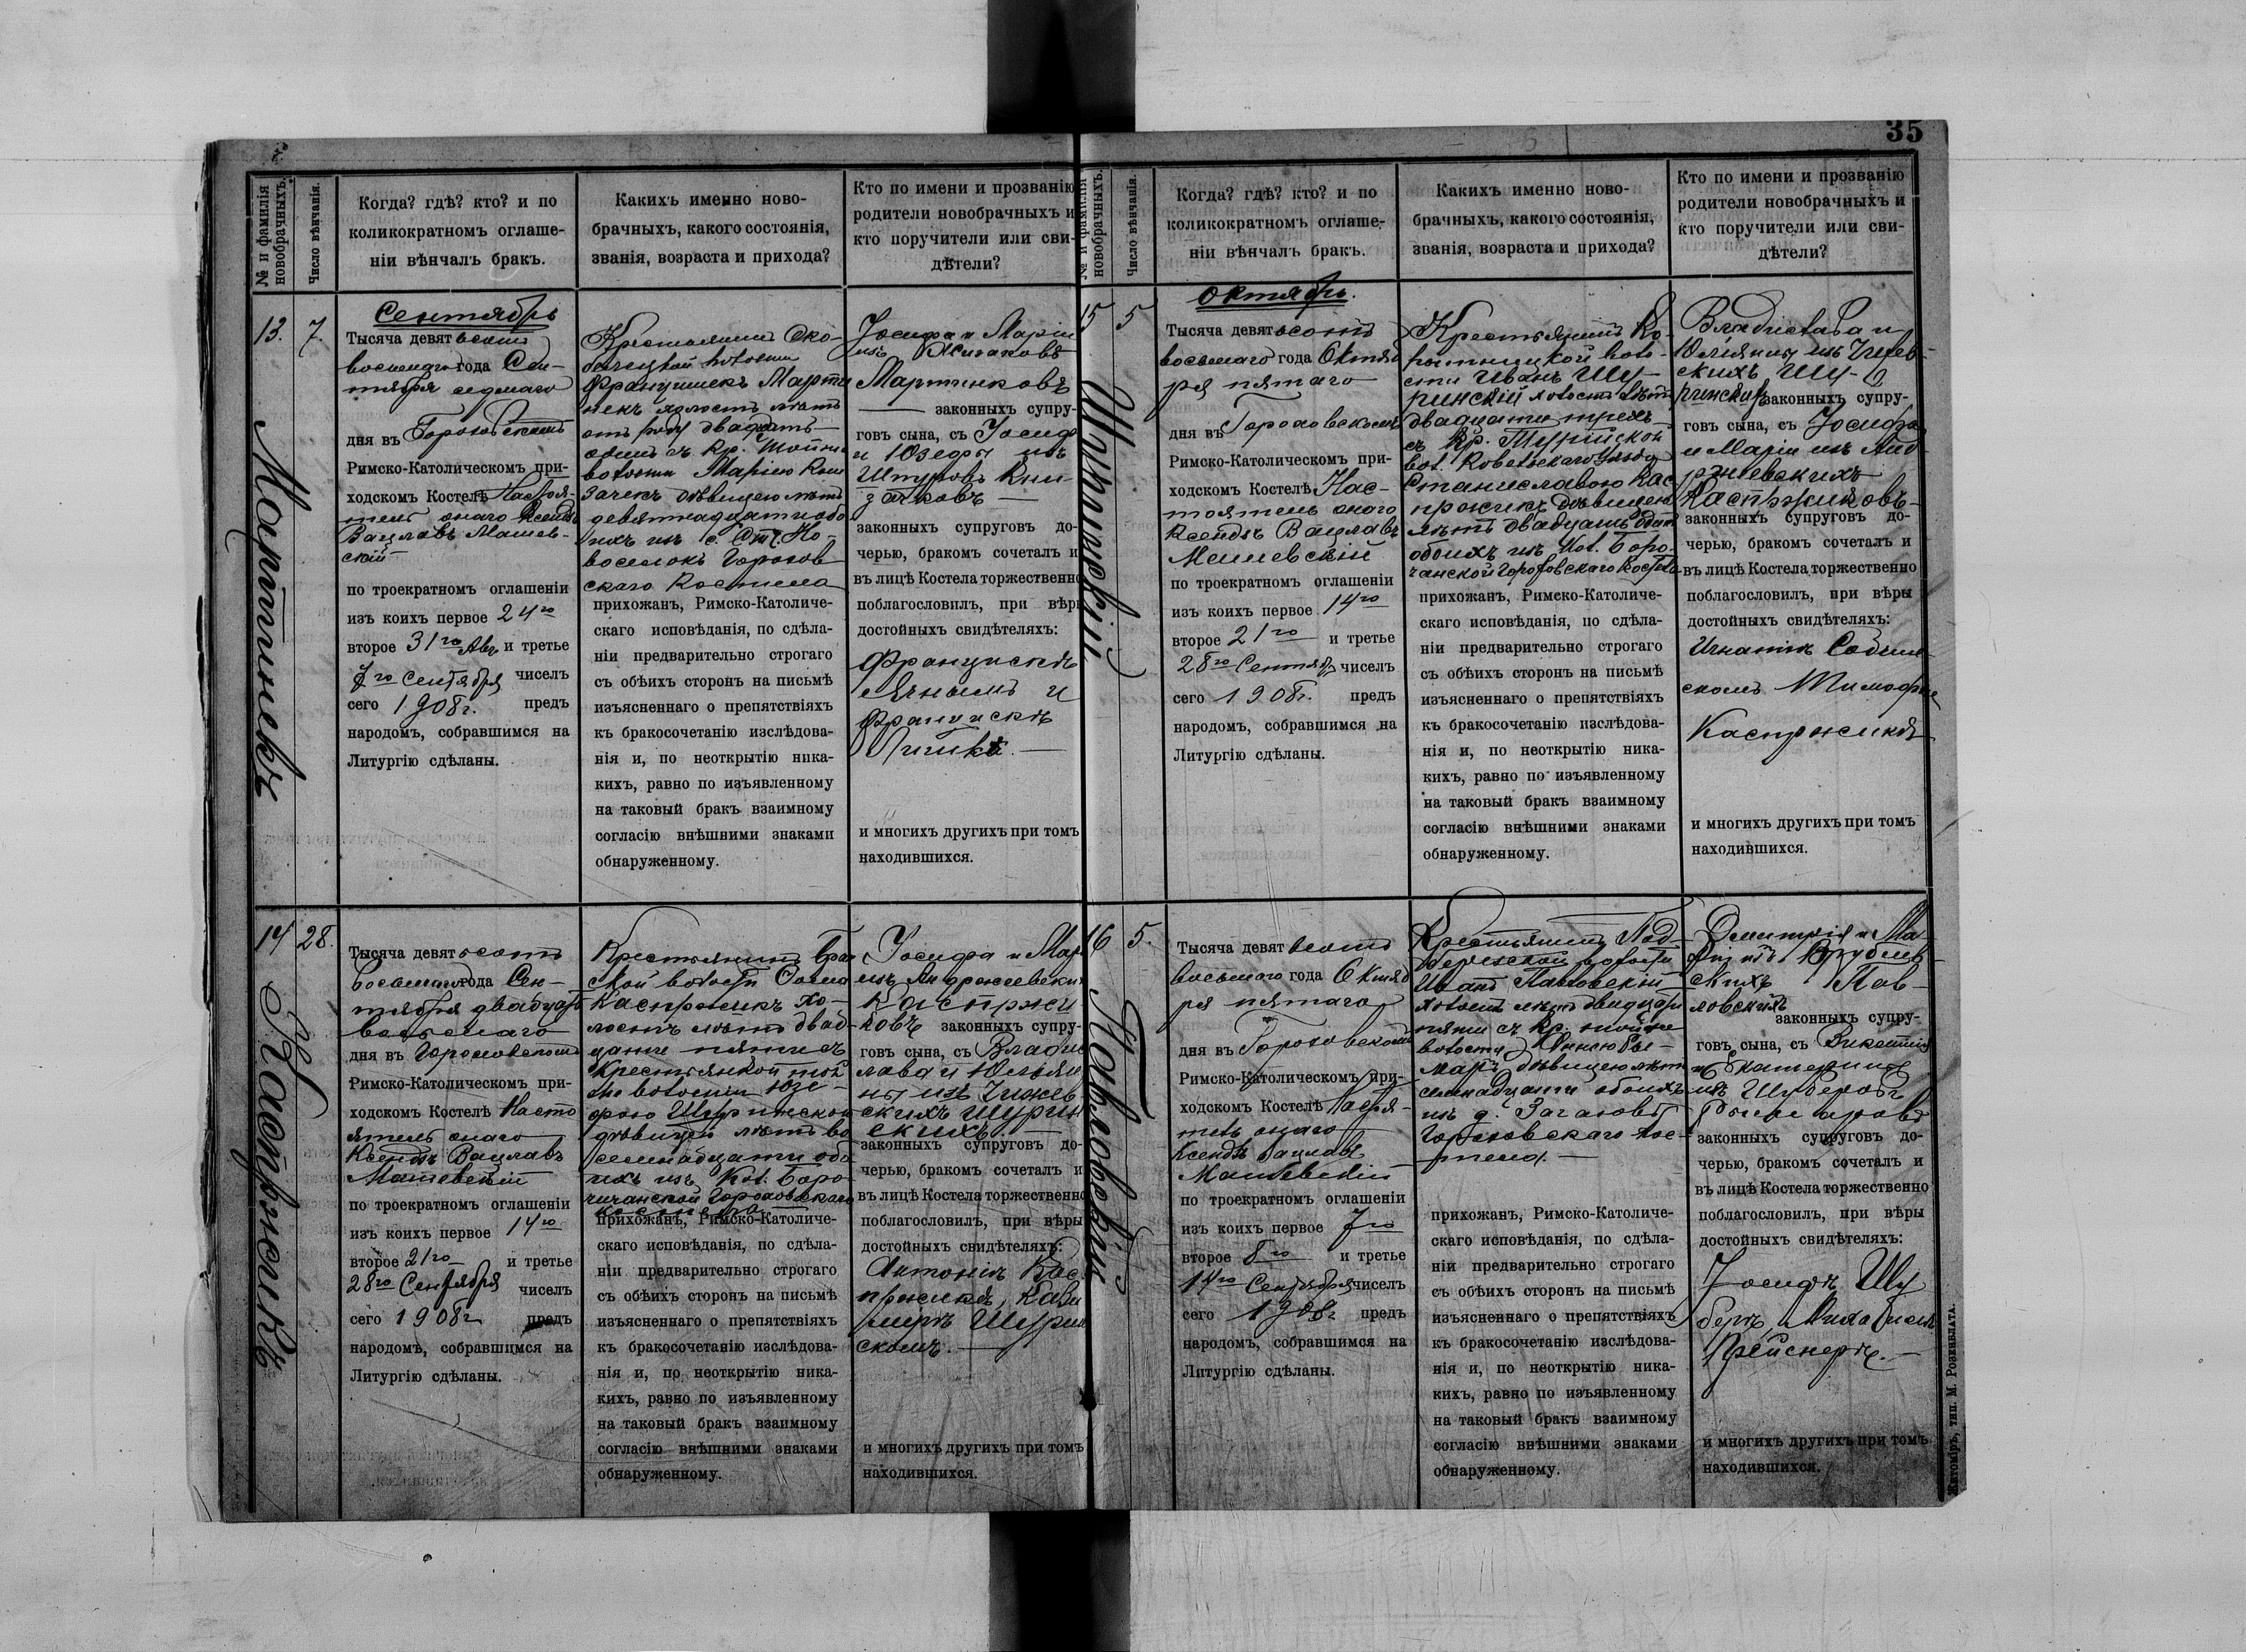 35
№ и фамилія новобрачныхъ.
Число вѣнчанія.
Когда? гдѣ? кто? и по
коликократномъ оглаше-
ніи вѣнчалъ бракъ.
Какихъ именно ново-
брачныхъ, какого состоянія,
званія, возраста и прихода?
Кто по имени и прозванію
родители новобрачныхъ и
кто поручители или сви-
дѣтели?
13.
7.
Мартинекъ
Сентябрь
Тысяча девятьсотъ
восьмаго года Сен-
тября седьмаго
дня въ Гороховскомъ
Римско-Католическомъ при-
ходскомъ Костелѣ Настоя-
тель онаго Ксендзъ
Вацлавъ Машев-
скій
по троекратномъ оглашеніи
изъ коихъ первое 24го
второе 31го Авг и третье
7го Сентября чиселъ
сего 1908г. предъ
народомъ, собравшимся на
Литургію сдѣланы.
Крестьянинъ Ско-
белецкой волости
Францишекъ Марти
некъ холостъ лѣтъ
двадцать
одинъ съ кр.
волости Маріею
дѣвицею лѣтъ
девятнадцати обо
ихъ изъ с. Но-
воселокъ Горохов
скаго Костела
прихожанъ, Римско-Католиче-
скаго исповѣданія, по сдѣла-
ніи предварительно строгаго
съ обѣихъ сторонъ на письмѣ
изъясненнаго о препятствіяхъ
къ бракосочетанію изслѣдова-
нія и, по неоткрытію ника-
кихъ, равно по изъявленному
на таковый бракъ взаимному
согласію внѣшними знаками
обнаруженному.
Іосифа и Маріи
изъ
Мартинковъ
законныхъ супру-
говъ сына, съ Іосифа
и Юзефы изъ
законныхъ супруговъ до-
черью, бракомъ сочеталъ и
въ лицѣ Костела торжественно
поблагословилъ, при вѣры
достойныхъ свидѣтеляхъ:
Францискѣ
и
Францискѣ
и многихъ другихъ при томъ
находившихся.
14
28.
Каспржикъ
Тысяча девятьсотъ
восьмаго года Сен-
тября двадцать
восьмаго
дня въ Гороховскомъ
Римско-Католическомъ при-
ходскомъ Костелѣ Насто
ятель онаго
Ксендзъ Вацлавъ
Машевскій
по троекратномъ оглашеніи
изъ коихъ первое 14го
второе 21го и третье
28го Сентября чиселъ
сего 1908г предъ
народомъ, собравшимся на
Литургію сдѣланы.
Крестьянинъ
волости
Каспржикъ хо-
лостъ лѣтъ двад-
цати пяти съ
Крестьянкой той
же волости Юзе-
фою Шуринской
дѣвицей лѣтъ во
семнадцати обо
ихъ изъ Кол. Боро-
чичанской Гороховскаго
костела
прихожанъ, Римско-Католиче-
скаго исповѣданія, по сдѣла-
ніи предварительно строгаго
съ обѣихъ сторонъ на письмѣ
изъясненнаго о препятствіяхъ
къ бракосочетанію изслѣдова-
нія и, по неоткрытію ника-
кихъ, равно по изъявленному
на таковый бракъ взаимному
согласію внѣшними знаками
обнаруженному.
Іосифа и Мар
изъ Андржеевски
Каспржи
ковъ законныхъ супру-
говъ сына, съ Владис
лава и Юльян
ны изъ Чижев
скихъ Шурин
скихъ
законныхъ супруговъ до-
черью, бракомъ сочеталъ и
въ лицѣ Костела торжественно
поблагословилъ, при вѣры
достойныхъ свидѣтеляхъ:
Антоніѣ Кас
пржикѣ, Кази
мирѣ Шурин
скомъ.
и многихъ другихъ при томъ
находившихся.
№ и фамилія новобрачныхъ.
Число вѣнчанія.
Когда? гдѣ? кто? и по
коликократномъ оглаше-
ніи вѣнчалъ бракъ.
Какихъ именно ново-
брачныхъ, какого состоянія,
званія, возраста и прихода?
Кто по имени и прозванію
родители новобрачныхъ и
кто поручители или сви-
дѣтели?
15
5
Шуринскій
Октябрь.
Тысяча девятьсотъ
восьмаго года Октяб
ря пятаго
дня въ Гороховскомъ
Римско-Католическомъ при-
ходскомъ Костелѣ Нас-
тоятель онаго
Ксендзъ Вацлавъ
Машевскій
по троекратномъ оглашеніи
изъ коихъ первое 14го
второе 21го и третье
28го Сентяб чиселъ
сего 1908г. предъ
народомъ, собравшимся на
Литургію сдѣланы.
Крестьянинъ Ко-
рытницкой воло-
сти Иванъ Шу-
ринскій холостъ лѣтъ
двадцати трехъ
съ кр. Турійской
вол. Ковельскаго уѣзда
Станиславою Кас
пржикъ дѣвицею
лѣтъ двадцать одинъ
обоихъ изъ Кол. Боро-
чанской Гороховскаго Костела
прихожанъ, Римско-Католиче-
скаго исповѣданія, по сдѣла-
ніи предварительно строгаго
съ обѣихъ сторонъ на письмѣ
изъясненнаго о препятствіяхъ
къ бракосочетанію изслѣдова-
нія и, по неоткрытію ника-
кихъ, равно по изъявленному
на таковый бракъ взаимному
согласію внѣшними знаками
обнаруженному.
Владислава и
Юліянны изъ Чижев-
скихъ Шу-
ринскихъ законныхъ супру-
говъ сына, съ Іосифа
и Маріи изъ Анд-
ржіевскихъ
Каспржиковъ
законныхъ супруговъ до-
черью, бракомъ сочеталъ и
въ лицѣ Костела торжественно
поблагословилъ, при вѣры
достойныхъ свидѣтеляхъ:
Игнатіѣ
скомъ
Каспржикѣ
и многихъ другихъ при томъ
находившихся.
16
5.
Павловскій
Тысяча девятьсотъ
восьмаго года Октяб
ря пятаго
дня въ Гороховскомъ
Римско-Католическомъ при-
ходскомъ Костелѣ Настоя-
тель онаго
Ксендзъ Вацлавъ
Машевскій
по троекратномъ оглашеніи
изъ коихъ первое 7го
второе 8го и третье
14го Сентября чиселъ
сего 1908г предъ
народомъ, собравшимся на
Литургію сдѣланы.
Крестьянинъ Под-
березской волости
Иванъ Павловскій
холостъ лѣтъ двадцати
пяти съ кр. той же
волости Аннею Рей-
маръ дѣвицею лѣтъ
семнадцати обоихъ
изъ д.
Гороховскаго Кос-
тела.
прихожанъ, Римско-Католиче-
скаго исповѣданія, по сдѣла-
ніи предварительно строгаго
съ обѣихъ сторонъ на письмѣ
изъясненнаго о препятствіяхъ
къ бракосочетанію изслѣдова-
нія и, по неоткрытію ника-
кихъ, равно по изъявленному
на таковый бракъ взаимному
согласію внѣшними знаками
обнаруженному.
Дмитрія и Ма-
ріи изъ Врублев-
скихъ Пав-
ловскихъ
законныхъ супру-
говъ сына, съ Викентія
и Екатерины
изъ Шуберовъ
законныхъ супруговъ до-
черью, бракомъ сочеталъ и
въ лицѣ Костела торжественно
поблагословилъ, при вѣры
достойныхъ свидѣтеляхъ:
Іосифѣ Шу
берѣ, Михаилѣ
Прейснерѣ.
и многихъ другихъ при томъ
находившихся.
Житоміръ, тип. М. Розенблата.